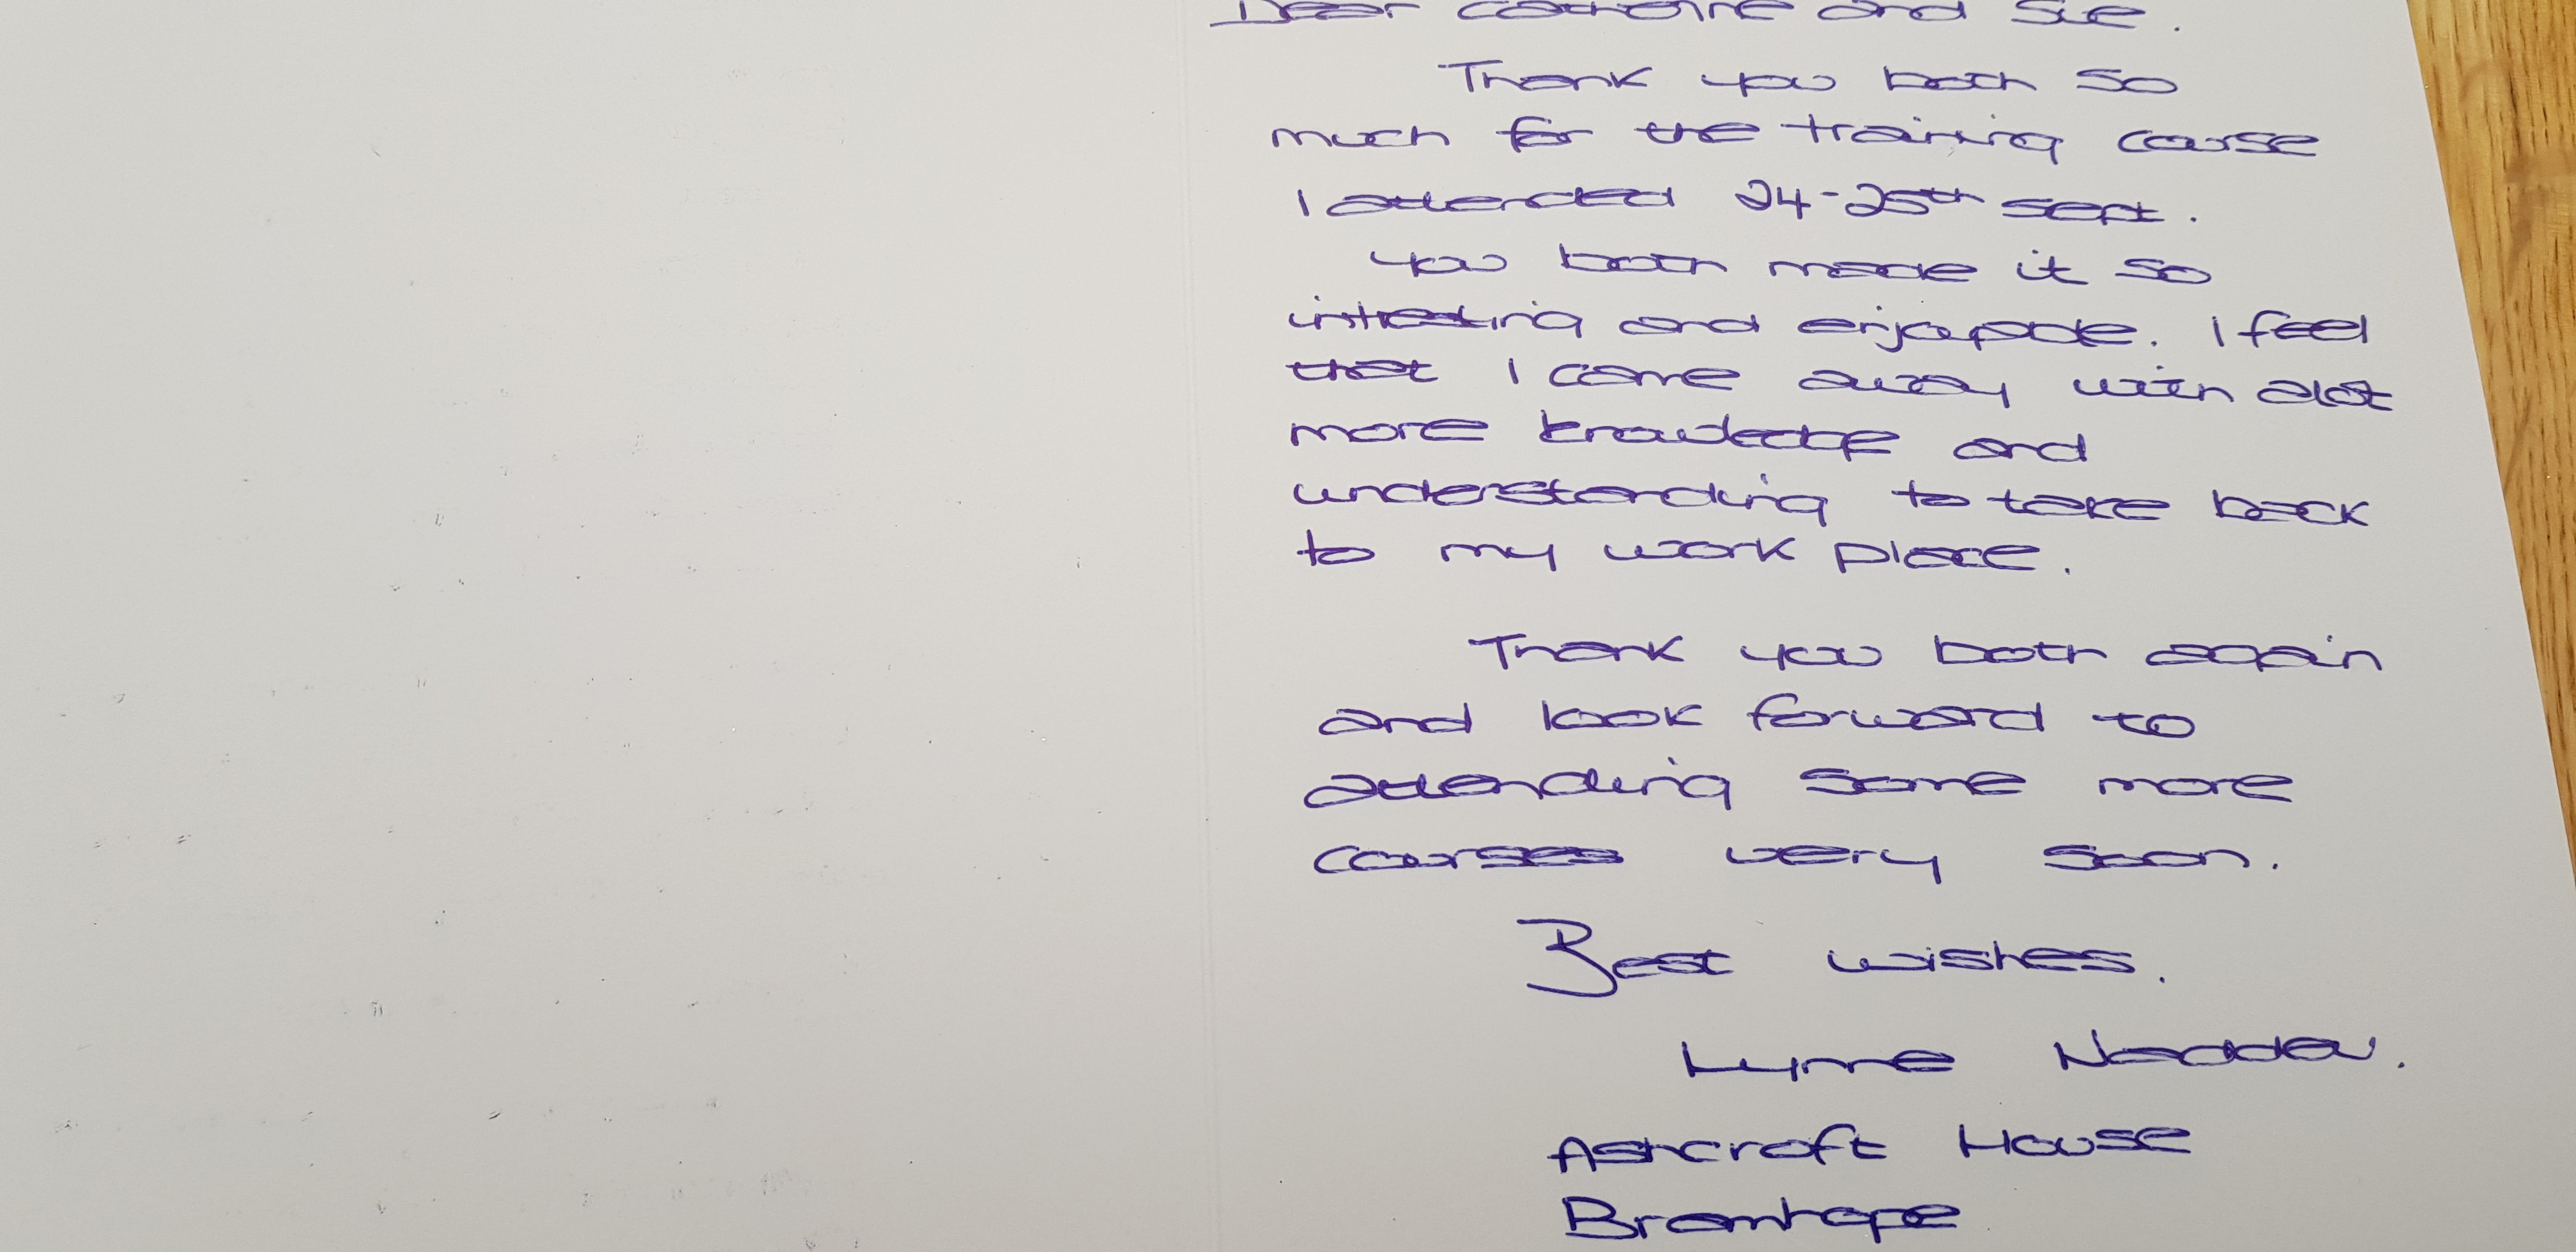 Dear Catherine and Sue.
Thank you both so
much for the training course
I attended 24-25th Sept.
You both made it so
intresting and enjoyable. I feel
that I came away with alot
more knowledge and
understanding to take back
to my work place.
Thank you both again
and look forward to
attending some more
courses very soon.
Best wishes.
Lynne
Ashcroft House
Bramhope